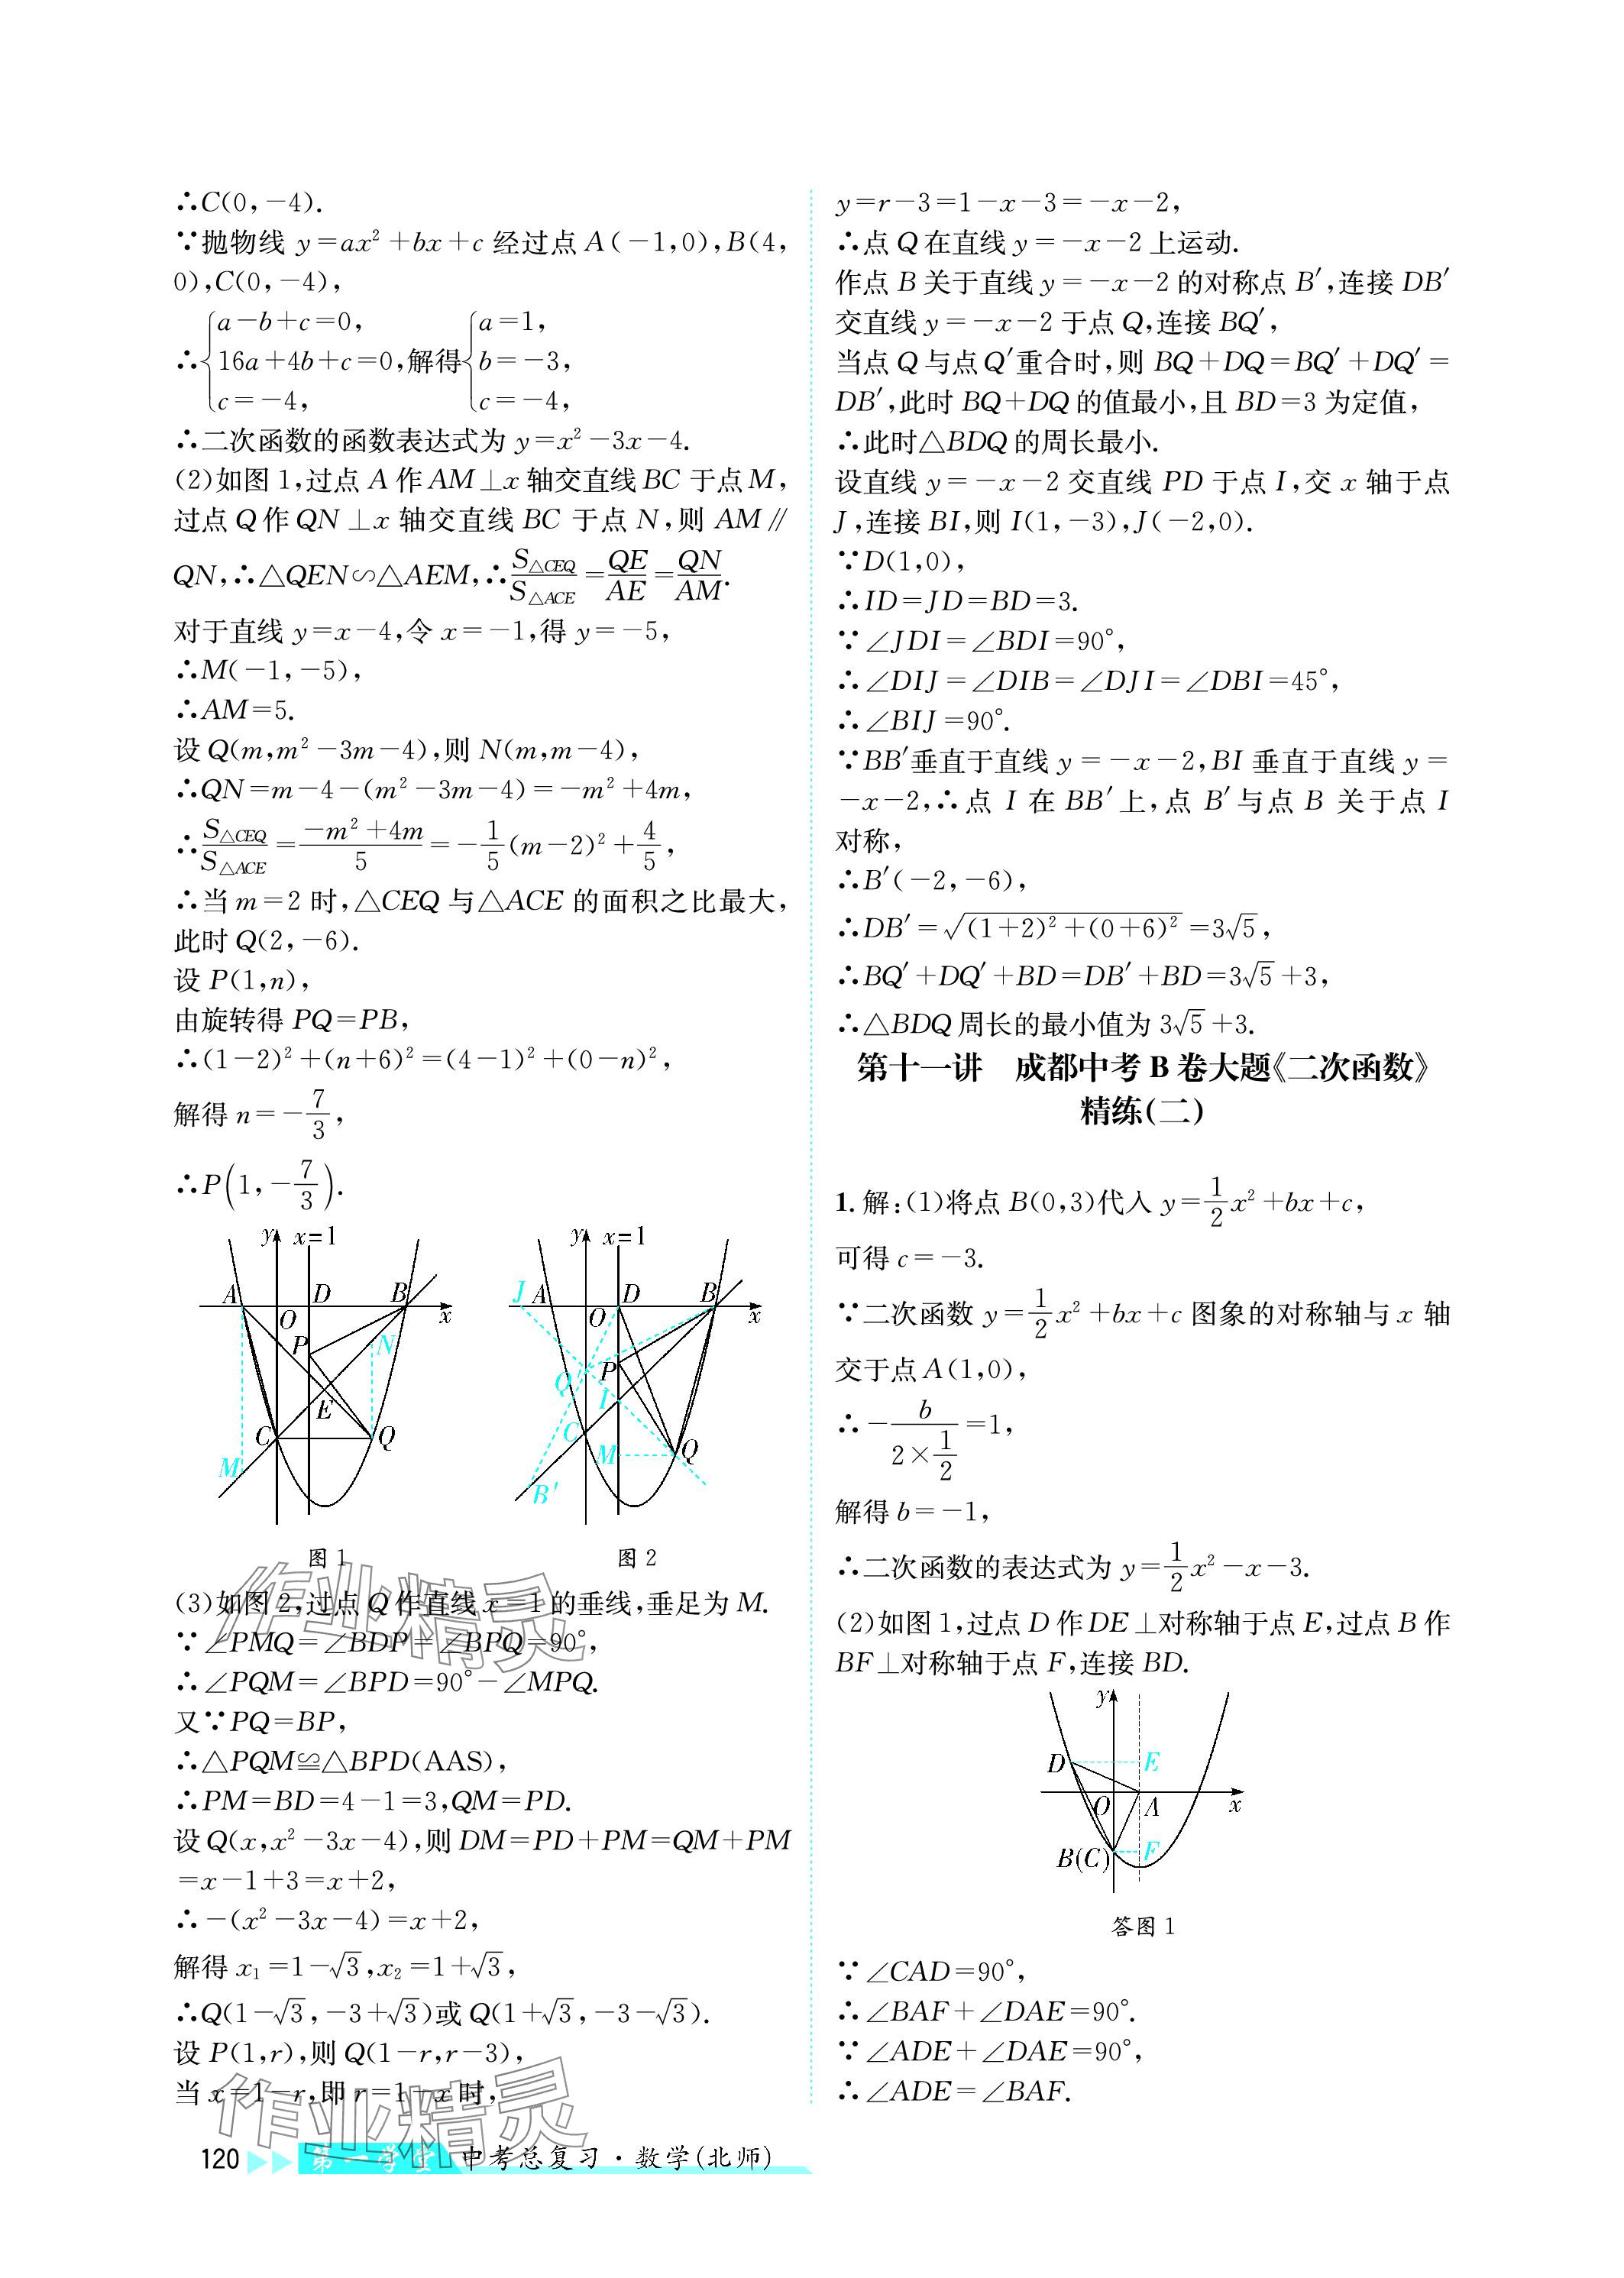 ∴C(0,-4).
∵抛物线 y=ax²+bx+c 经过点A(-1,0),B(4,
0),C(0,-4),
∴{a-b+c=0, 16a+4b+c=0, c=-4, 解得{a=1, b=-3, c=-4,
∴二次函数的函数表达式为 y=x²-3x-4.
(2)如图1,过点A作AM⊥x轴交直线BC于点M,
过点Q作QN⊥x轴交直线BC于点N,则AM∥
QN,∴△QEN∽△AEM,∴S△CEQ/S△ACE=QE/AE=QN/AM.
对于直线 y=x-4,令 x=-1,得 y=-5,
∴M(-1,-5),
∴AM=5.
设Q(m,m²-3m-4),则N(m,m-4),
∴QN=m-4-(m²-3m-4)=-m²+4m,
∴S△CEQ/S△ACE=(-m²+4m)/5=-1/5(m-2)²+4/5,
∴当m=2时,△CEQ与△ACE的面积之比最大,
此时Q(2,-6).
设P(1,n),
由旋转得PQ=PB,
∴(1-2)²+(n+6)²=(4-1)²+(0-n)²,
解得 n=-7/3,
∴P(1,-7/3).
y x=1
A D B
O x
P N
E
C Q
M
图1
y x=1
J A D B
O x
Q′ P
I
C M Q
B′
图2
(3)如图2,过点Q作直线x=1的垂线,垂足为M.
∵∠PMQ=∠BDP=∠BPQ=90°,
∴∠PQM=∠BPD=90°-∠MPQ.
又∵PQ=BP,
∴△PQM≌△BPD(AAS),
∴PM=BD=4-1=3,QM=PD.
设Q(x,x²-3x-4),则DM=PD+PM=QM+PM
=x-1+3=x+2,
∴-(x²-3x-4)=x+2,
解得 x₁=1-√3,x₂=1+√3,
∴Q(1-√3,-3+√3)或Q(1+√3,-3-√3).
设P(1,r),则Q(1-r,r-3),
当x=1-r,即r=1-x时,
y=r-3=1-x-3=-x-2,
∴点Q在直线y=-x-2上运动.
作点B关于直线y=-x-2的对称点B′,连接DB′
交直线y=-x-2于点Q,连接BQ′,
当点Q与点Q′重合时,则BQ+DQ=BQ′+DQ′=
DB′,此时BQ+DQ的值最小,且BD=3为定值,
∴此时△BDQ的周长最小.
设直线y=-x-2交直线PD于点I,交x轴于点
J,连接BI,则I(1,-3),J(-2,0).
∵D(1,0),
∴ID=JD=BD=3.
∵∠JDI=∠BDI=90°,
∴∠DIJ=∠DIB=∠DJI=∠DBI=45°,
∴∠BIJ=90°.
∵BB′垂直于直线y=-x-2,BI垂直于直线y=
-x-2,∴点I在BB′上,点B′与点B关于点I
对称,
∴B′(-2,-6),
∴DB′=√((1+2)²+(0+6)²)=3√5,
∴BQ′+DQ′+BD=DB′+BD=3√5+3,
∴△BDQ周长的最小值为3√5+3.
第十一讲 成都中考B卷大题《二次函数》
精练(二)
1.解:(1)将点B(0,3)代入 y=1/2x²+bx+c,
可得c=-3.
∵二次函数 y=1/2x²+bx+c图象的对称轴与x轴
交于点A(1,0),
∴-b/(2×1/2)=1,
解得b=-1,
∴二次函数的表达式为 y=1/2x²-x-3.
(2)如图1,过点D作DE⊥对称轴于点E,过点B作
BF⊥对称轴于点F,连接BD.
y
D E
O A x
B(C) F
答图1
∵∠CAD=90°,
∴∠BAF+∠DAE=90°.
∵∠ADE+∠DAE=90°,
∴∠ADE=∠BAF.
作业精灵
作业精灵
120 第一学堂 中考总复习·数学(北师)